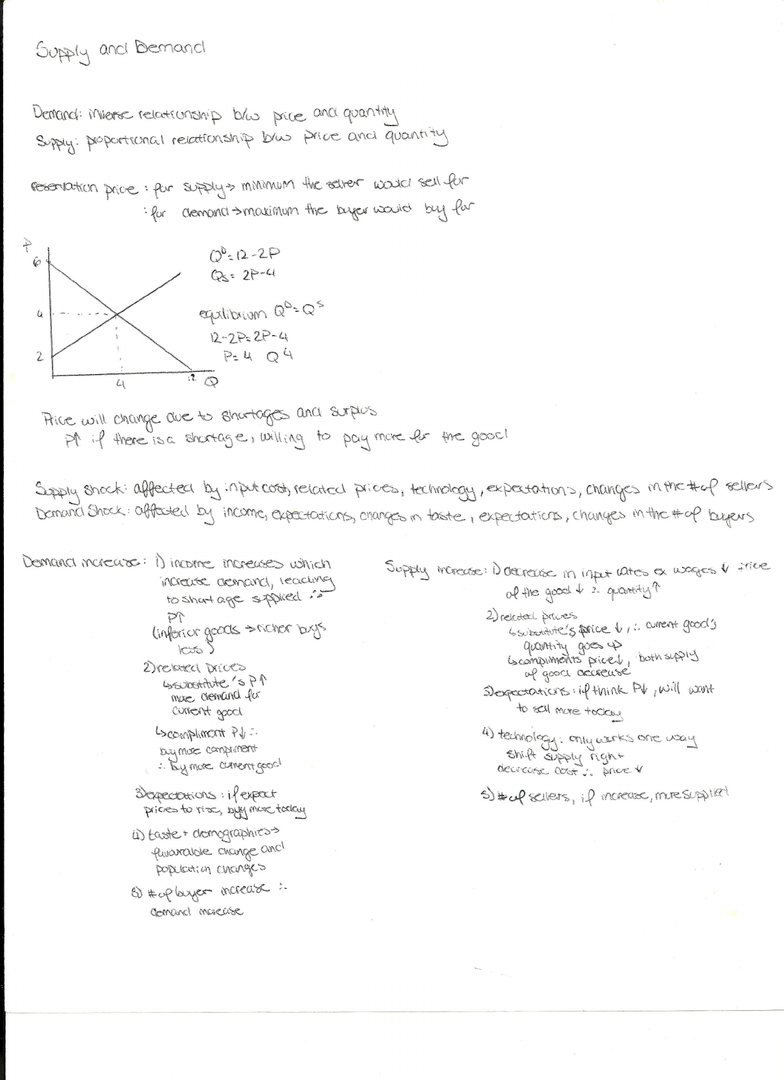 Supply and Demand
Demand: inverse relationship b/w price and quantity
Supply: proportional relationship b/w price and quantity
reservation price : for supply → minimum the seller would sell for
: for demand → maximum the buyer would buy for
P
6
4
2
4
12
Q
Q^D = 12-2P
Qs = 2P-4
equilibrium Q^D = Q^S
12-2P=2P-4
P= 4 Q 4
Price will change due to shortages and surplus
P↑ if there is a shortage, willing to pay more for the good
Supply shock: affected by input cost, related prices, technology, expectations, changes in the # of sellers
Demand Shock: affected by income, expectations, changes in taste, expectations, changes in the # of buyers
Demand increase: 1) income increases which
increase demand, leading
to shortage supplied ∴
P↑
(inferior goods → richer buys
less)
2) related prices
↳ substitute's P↑
more demand for
current good
↳ compliment P↓ ∴
buy more compliment
∴ buy more current good
3) expectations : if expect
prices to rise, buy more today
4) taste + demographics →
favourable change and
population changes
5) # of buyer increase ∴
demand increase
Supply increase: 1) decrease in input rates or wages ↓ price
of the good ↓ ∴ quantity ↑
2) related prices
↳ substitute's price ↓, ∴ current good's
quantity goes up
↳ compliments price ↓, both supply
of good decrease
3) expectations : if think P↓, will want
to sell more today
4) technology : only works one way
shift supply right
decrease cost ∴ price ↓
5) # of sellers, if increase, more supplied